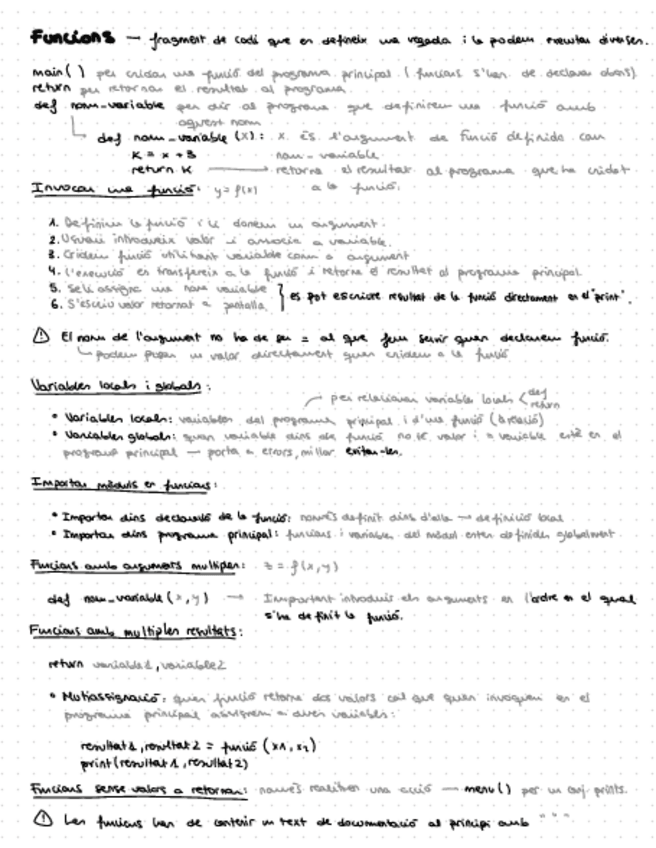 Funcions — fragment de codi que es defineix una vegada i la podem executar diverses.
main() per cridar una funció del programa principal (funcions s'han de declarar abans)
return per retornar el resultat al programa
def nom-variable per dir al programa que definirem una funció amb
aquest nom
def nom-variable (x): x és l'argument de funció definida com
K = x + 3 nom-variable
return K → retorna el resultat al programa que ha cridat
a la funció.
Invocar una funció: y = f(x)
1. Definim la funció i li donem un argument.
2. Usuari introdueix valor i associa a variable.
3. Cridem funció utilitzant variable com a argument
4. L'execució es transfereix a la funció i retorna el resultat al programa principal.
5. Se li assigna una nova variable
6. S'escriu valor retornat a pantalla } es pot escriure resultat de la funció directament en el "print".
⚠ El nom de l'argument no ha de ser = al que fem servir quan declarem funció.
podem posar un valor directament quan cridem a la funció
Variables locals i globals:
per relacionar variables locals < def
return
• Variables locals: variables del programa principal i d'una funció (creació)
• Variables globals: quan variable dins de funció no té valor i a variable està en el
programa principal — porta a errors, millor evitar-les.
Importar mòduls en funcions:
• Importar dins declaració de la funció: només definit dins d'ella → definició local
• Importar dins programa principal: funcions i variables del mòdul estan definides globalment
Funcions amb arguments multiples: z = f(x,y)
def nom-variable (x,y) → Important introduir els arguments en l'ordre en el qual
s'ha definit la funció.
Funcions amb multiples resultats:
return variable1, variable2
• Mutiassignació: quan funció retorna dos valors cal que quan invoquem en el
programa principal assignem a dues variables:
resultat1, resultat2 = funció (x1, x2)
print(resultat1, resultat2)
Funcions sense valors a retornar: només realitzen una acció — menu() per un conj. prints.
⚠ Les funcions han de contenir un text de documentació al principi amb " " "